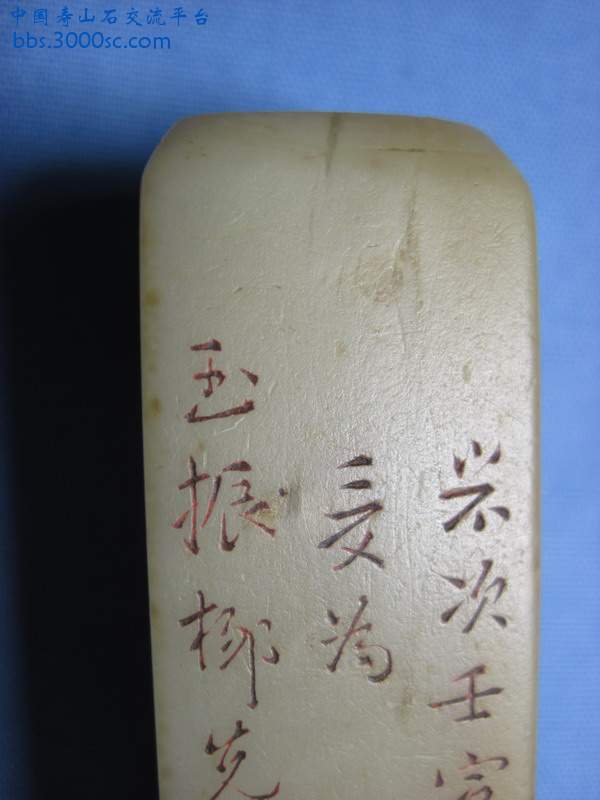 中国寿山石交流平台
bbs.3000sc.com
岁次壬寅
为
玉振先